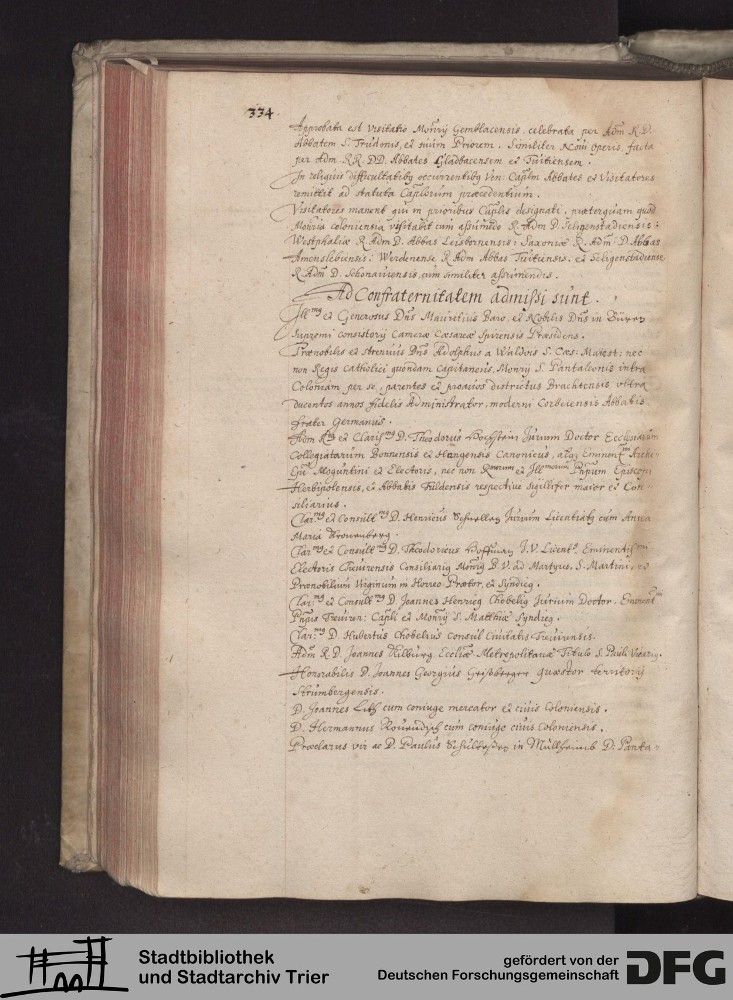 334
Approbata est visitatio Monrÿ Gemblacensis celebrata per Adm R.D.
Abbatem S. Trudonis, et suum Priorem. Similiter Noui Operis, facta
per Adm. RR. DD. Abbates Gladbacensem et Tuitiensem.
In reliquis difficultatibg occurrentibg Ven: Caplm Abbates et Visitatores
remittit ad statuta Caplorum præcedentium.
Visitatores manent qui in prioribus Caplis designati, præterquam quod
Monria coloniensia visitabit cum assumedo R. Adm D. Seligenstadiensis:
Westphaliæ R. Adm D. Abbas Leisbornensis: Saxoniæ R. Adm. D. Abbas
Amenslebiensis: Werdenense R Adm Abbas Tuitiensis. et Seligenstadiense
R. Adm D. Schonauiensis, cum similiter assumendis.
Ad Confraternitatem admissi sunt.
Illmg et Generosus Dns Mauritius Baro, et Nobilis Dns in Büren
supremi consistorÿ Cameræ Cæsareæ Spirensis Præsidens.
Prænobilis et Strenuus Dns Adolphus a Walbois S. Cæs. Maiest: nec
non Regis Catholici quondam Capitaneus, Monrÿ S. Pantaleonis intra
Coloniam per se, parentes et proauos districtus Brachtensis, vltra
ducentos annos fidelis Administrator, moderni Corbeiensis Abbatis
frater Germanus.
Adm Rdg et Clarissmg D. Theodorus Jurium Doctor Ecclesiarum
Collegiatarum Bonnensis et Canonicus, Eminentmi Archi-
Epi Moguntini et Electoris, nec non Rmorum et Illmorum Pnpum Episcopi
Herbipolensis, et Abbatis Fuldensis respectiue Sigillifer maior et Con-
siliarius.
Clar:mg et Consultmg D. Henricus Jurium Licentiatg cum Anna
Maria Kronenberg.
Clarmg et Consultmg D. Theodoricus Hoffman J.V. Licent9. Eminentissmi
Electoris Treuirensis Consiliarig Monrÿ B.V. ad Martyres, S. Martini, et
Prænobilium Virginum in Horreo Prætor, et Syndicg.
Clar:mg et Consultmg D. Joannes Henricg Chobelig Jurium Doctor. Eminentmi
Pnpis Treuiren: Capli et Monrÿ S. Matthiæ Syndicg.
Clar:mg D. Hubertus Chobelius Consul Ciuitatis Treuirensis.
Adm R.D. Joannes Kilburg Ecclæ Metropolitanæ Titulo S. Pauli Vicarig.
Honorabilis D. Joannes Georgius quæstor territorÿ
Strumbergensis.
D. Joannes Lith cum coniuge mercator et ciuis Coloniensis.
D. Hermannus cum coniuge ciuis Coloniensis.
Præclarus vir ac D. Paulus in Müllheimb D. Panta-
Stadtbibliothek
und Stadtarchiv Trier
gefördert von der
Deutschen Forschungsgemeinschaft
DFG